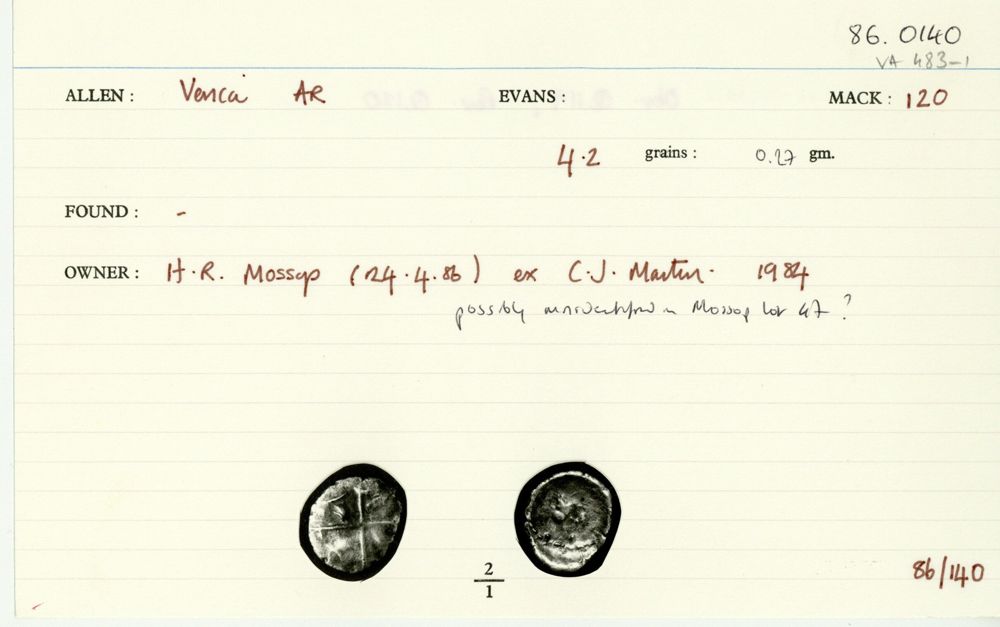 86. 0140
VA 483-1
ALLEN : Verica AR EVANS : MACK : 120
4.2 grains : 0.27 gm.
FOUND : -
OWNER : H.R. Mossop (24.4.86) ex C.J. Martin. 1984
possibly in Mossop lot 47 ?
2
1
86/140